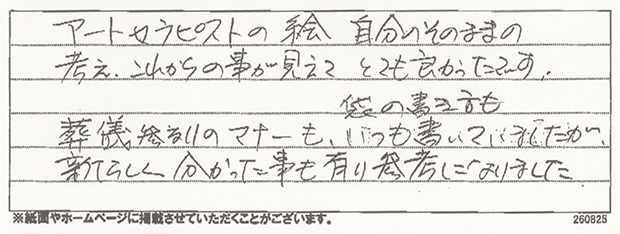 アートセラピストの絵 自分のそのままの
考え、これからの事が見えて とても良かったです。
袋の書き方も
葬儀参列のマナーも、いつも書いていましたが、
新らしく 分かった事も有り参考になりました
※紙面やホームページに掲載させていただくことがございます。
260825